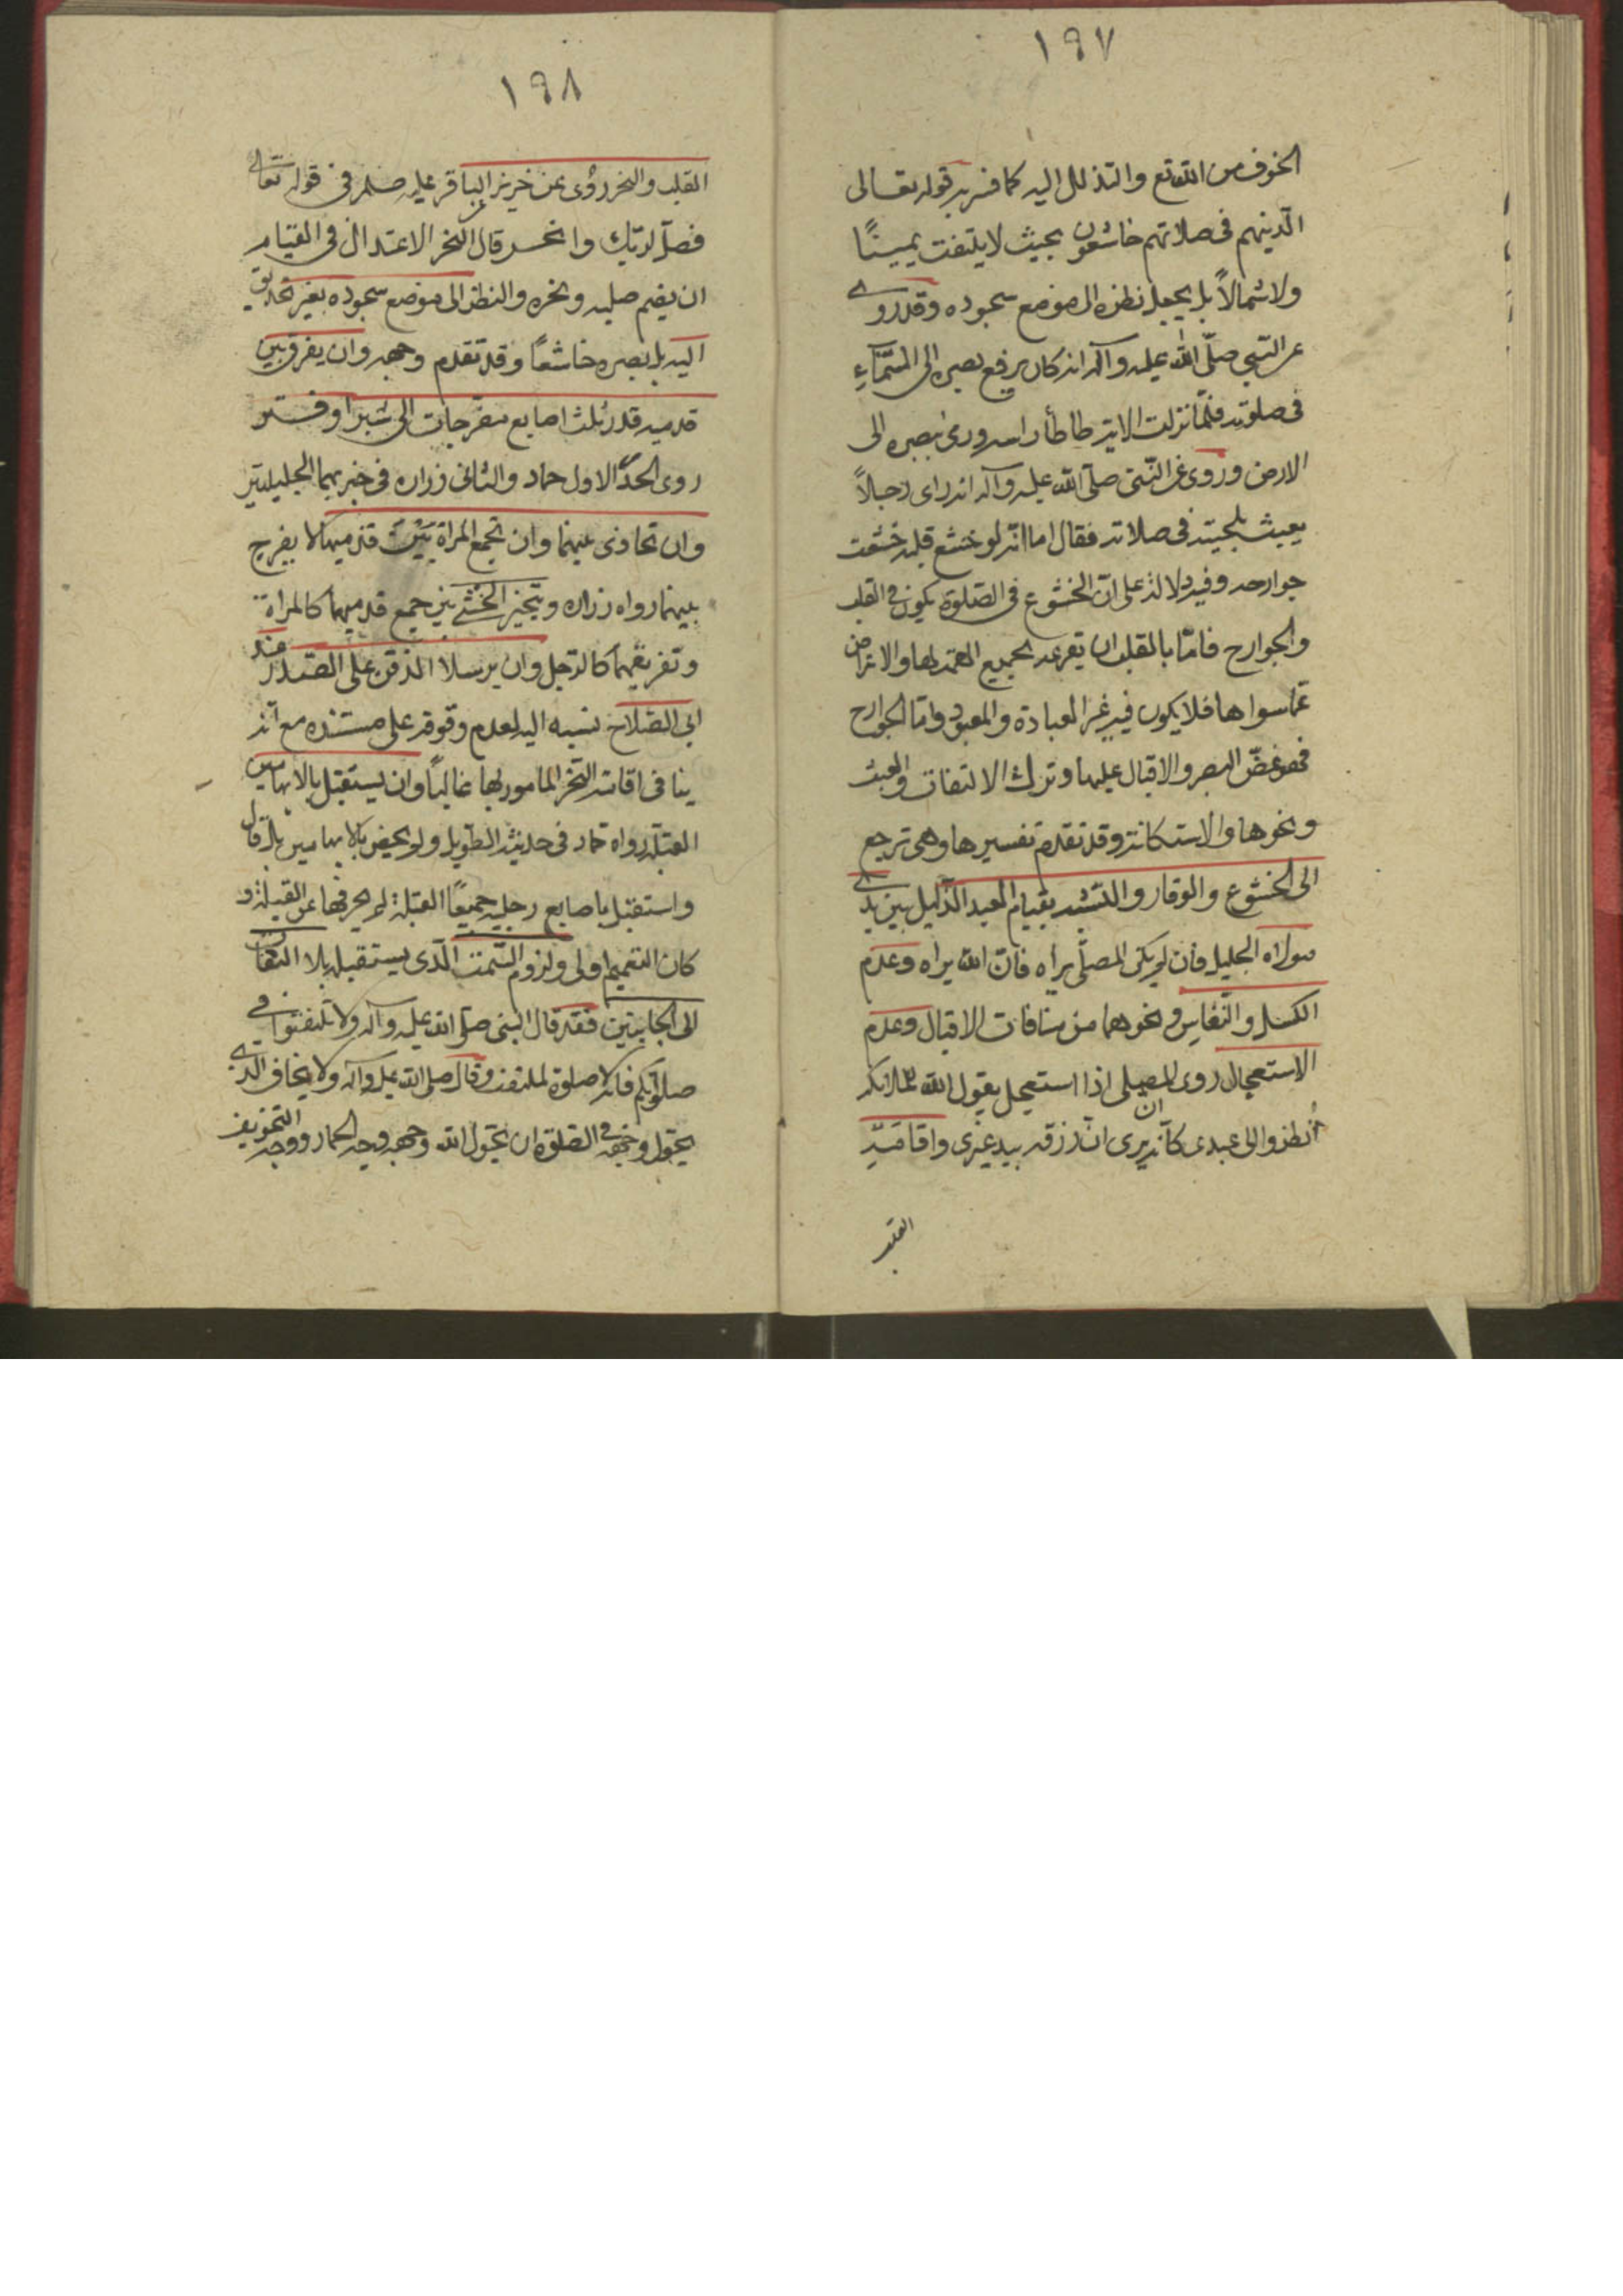 ١٩٧
الخوف من الله تع والتذلل اليه كما فسر به قوله تعالى
الّذينهم فى صلاتهم خاشعون بحيث لا يلتفت يمينًا
ولا شمالاً بل يجعل نظره الى موضع سجوده وقد روى
عن النّبي صلّى الله عليه وآله انه كان يرفع بصره الى السّمآءِ
فى صلوته فلمّا نزلت الاية طاطأ راسه ورمى ببصره الى
الارض وروى عن النّبى صلّى الله عليه وآله انه راى رجلاً
يعبث بلحيته فى صلاته فقال اما انّه لو خشع قلبه خشعت
جوارحه وفيه دلالة على انّ الخشوع فى الصّلوة يكون فى القلب
والجوارح فامّا بالقلب ان يفرغه لجميع الهمّة لها والاعراض
عمّا سواها فلا يكون فيه غير العبادة والمعبود وامّا الجوارح
فهو غضّ البصر والاقبال عليها وترك الالتفات والعبث
ونحوها والاستكانة وقد تقدم تفسيرها وهى ترجع
الى الخشوع والوقار والتشبه بقيام العبد الذّليل بين يدى
مولاه الجليل فان لم يكن المصلّى يراه فانّ الله يراه وعدم
الكسل والنّعاس ونحوهما من منافات الاقبال وعدم
الاستعجال روى ان المصلى اذا استعجل يقول الله لملائكته
اُنظروا الى عبدى كانّه يرى انّ رزقه بيد غيرى واقامة
القلب
١٩٨
القلب والنحر روى عن حريز عن الباقر عليه صلم فى قوله تعالى
فصلّ لربّك وانحر قال النحر الاعتدال فى القيام
ان يقيم صلبه ونحره والنظر الى موضع سجوده بغير تحديق
اليه بل بصره خاشعًا وقد تقدم وجهه وان يفرق بين
قدميه قدر ثلث اصابع منفرجات الى شبر او فتر
روى الحدّ الاول حماد والثانى زراره فى خبريهما الجليلين
وان تحاذى بينهما وان تجمع المراة بين قدميها لا يفرج
بينهما رواه زراره ويتخير الخنثى بين جمع قدميهما كالمراة
وتفريقهما كالرّجل وان يرسلا الذقن على الصّدر عند
ابى الصّلاح نسبه اليه لعدم وقوفه على مستنده مع انه
ينافى اقامة النّحر المامور بها غالبًا وان يستقبل بالابهامين
القبلة رواه حماد فى حديثه الطّويل ولم يخص بالابهامين بل قال
واستقبل باصابع رجليه جميعًا القبلة لم يحرفها عن القبلة و
كان التعميم اولى ولزوم السّمت الّذى يستقبله بلا التفات
الى الجانبين فقد قال النبى صلّى الله عليه وآله ولا تلتفتوا فى
صلوتكم فانه لا صلوة لملتفت وقال صلى الله عليه وآله ولا يخاف الّذى
يحوّل وجهه فى الصّلوة ان يحوّل الله وجهه وجه الحمار ووجه التخويف